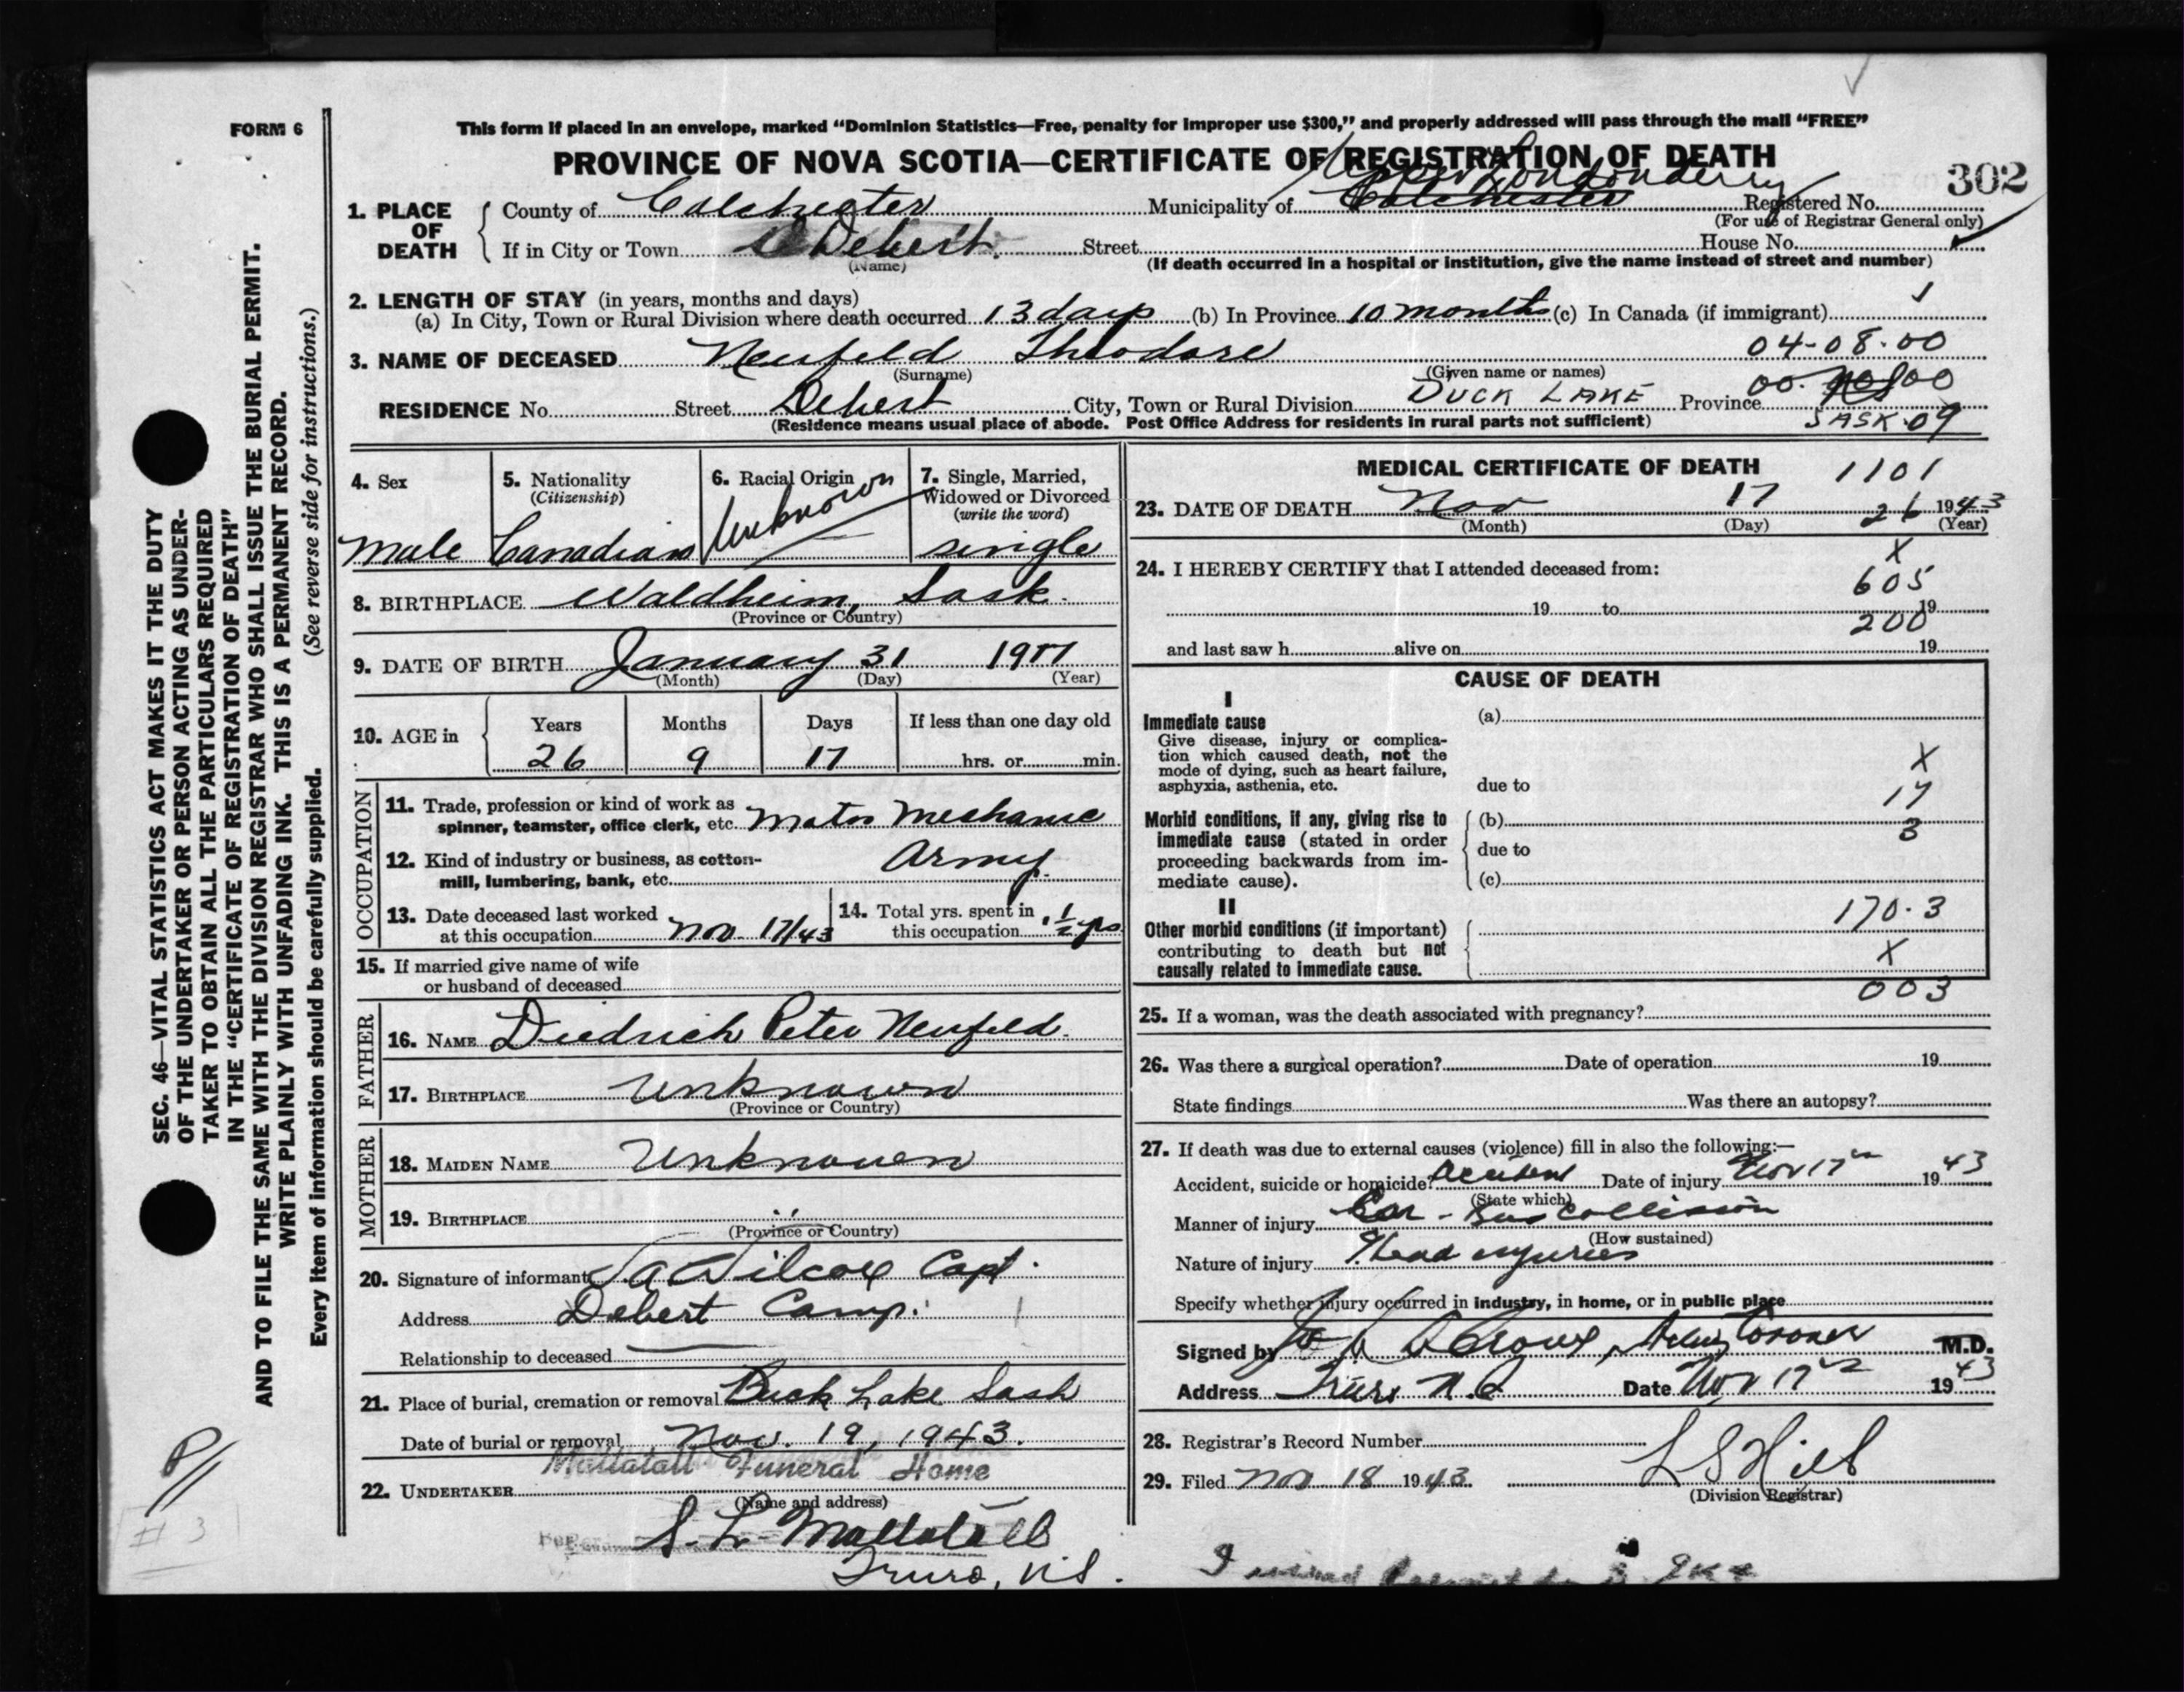 FORM 6
This form if placed in an envelope, marked "Dominion Statistics—Free, penalty for improper use $300," and properly addressed will pass through the mail "FREE"
PROVINCE OF NOVA SCOTIA—CERTIFICATE OF REGISTRATION OF DEATH
302
Upper Londonderry
1. PLACE OF DEATH
County of Colchester Municipality of Colchester Registered No.
(For use of Registrar General only)
If in City or Town Debert. Street House No.
(Name)
(If death occurred in a hospital or institution, give the name instead of street and number)
2. LENGTH OF STAY (in years, months and days)
(a) In City, Town or Rural Division where death occurred 13 days (b) In Province 10 months (c) In Canada (if immigrant)
3. NAME OF DECEASED Neufeld Theodore 04-08-00
(Surname) (Given name or names)
RESIDENCE No. Street Debert City, Town or Rural Division DUCK LAKE Province
SASK 09
(Residence means usual place of abode. Post Office Address for residents in rural parts not sufficient)
4. Sex
Male
5. Nationality
(Citizenship)
Canadian
6. Racial Origin
Unknown
7. Single, Married,
Widowed or Divorced
(write the word)
single
8. BIRTHPLACE Waldheim, Sask.
(Province or Country)
9. DATE OF BIRTH January 31 1917
(Month) (Day) (Year)
10. AGE in
Years Months Days If less than one day old
26 9 17 hrs. or min.
OCCUPATION
11. Trade, profession or kind of work as
spinner, teamster, office clerk, etc. Motor Mechanic
12. Kind of industry or business, as cotton-
mill, lumbering, bank, etc. Army.
13. Date deceased last worked
at this occupation Nov. 17/43
14. Total yrs. spent in
this occupation 1½ yrs
15. If married give name of wife
or husband of deceased
FATHER
16. NAME Diedrich Peter Neufeld.
17. BIRTHPLACE Unknown
(Province or Country)
MOTHER
18. MAIDEN NAME Unknown
19. BIRTHPLACE "
(Province or Country)
20. Signature of informant Wilcox Capt.
Address Debert Camp.
Relationship to deceased
21. Place of burial, cremation or removal Duck Lake Sask
Date of burial or removal Nov. 19, 1943.
Mattatall Funeral Home
22. UNDERTAKER
(Name and address)
Per S. L. Mattatall
Truro, N.S.
MEDICAL CERTIFICATE OF DEATH 1101
23. DATE OF DEATH Nov 17 26 1943
(Month) (Day) (Year)
X
24. I HEREBY CERTIFY that I attended deceased from:
605
19 to 19
200
and last saw h alive on 19
CAUSE OF DEATH
I
Immediate cause
Give disease, injury or complica-
tion which caused death, not the
mode of dying, such as heart failure,
asphyxia, asthenia, etc.
(a)
X
due to
17
Morbid conditions, if any, giving rise to
immediate cause (stated in order
proceeding backwards from im-
mediate cause).
(b)
3
due to
(c)
II
Other morbid conditions (if important)
contributing to death but not
causally related to immediate cause.
170.3
X
003
25. If a woman, was the death associated with pregnancy?
26. Was there a surgical operation? Date of operation 19
State findings Was there an autopsy?
27. If death was due to external causes (violence) fill in also the following:—
Accident, suicide or homicide? Accident Date of injury Nov 17th 1943
(State which)
Manner of injury Car - Bus Collision
(How sustained)
Nature of injury Head injuries
Specify whether injury occurred in industry, in home, or in public place
Signed by Coroner M.D.
Address Truro N.S. Date Nov 17th 1943
28. Registrar's Record Number
29. Filed Nov 18 1943. L S Hill
(Division Registrar)
SEC. 46—VITAL STATISTICS ACT MAKES IT THE DUTY
OF THE UNDERTAKER OR PERSON ACTING AS UNDER-
TAKER TO OBTAIN ALL THE PARTICULARS REQUIRED
IN THE "CERTIFICATE OF REGISTRATION OF DEATH"
AND TO FILE THE SAME WITH THE DIVISION REGISTRAR WHO SHALL ISSUE THE BURIAL PERMIT.
WRITE PLAINLY WITH UNFADING INK. THIS IS A PERMANENT RECORD.
(See reverse side for instructions.)
Every item of information should be carefully supplied.
# 3